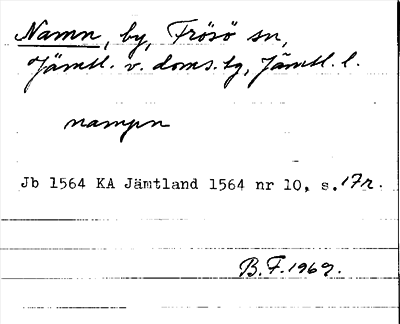 Namn, by, Frösö sn,
Jämtl. v. doms.tg, Jämtl. l.
nampn
Jb 1564 KA Jämtland 1564 nr 10, s. 17r.
B.F. 1969.